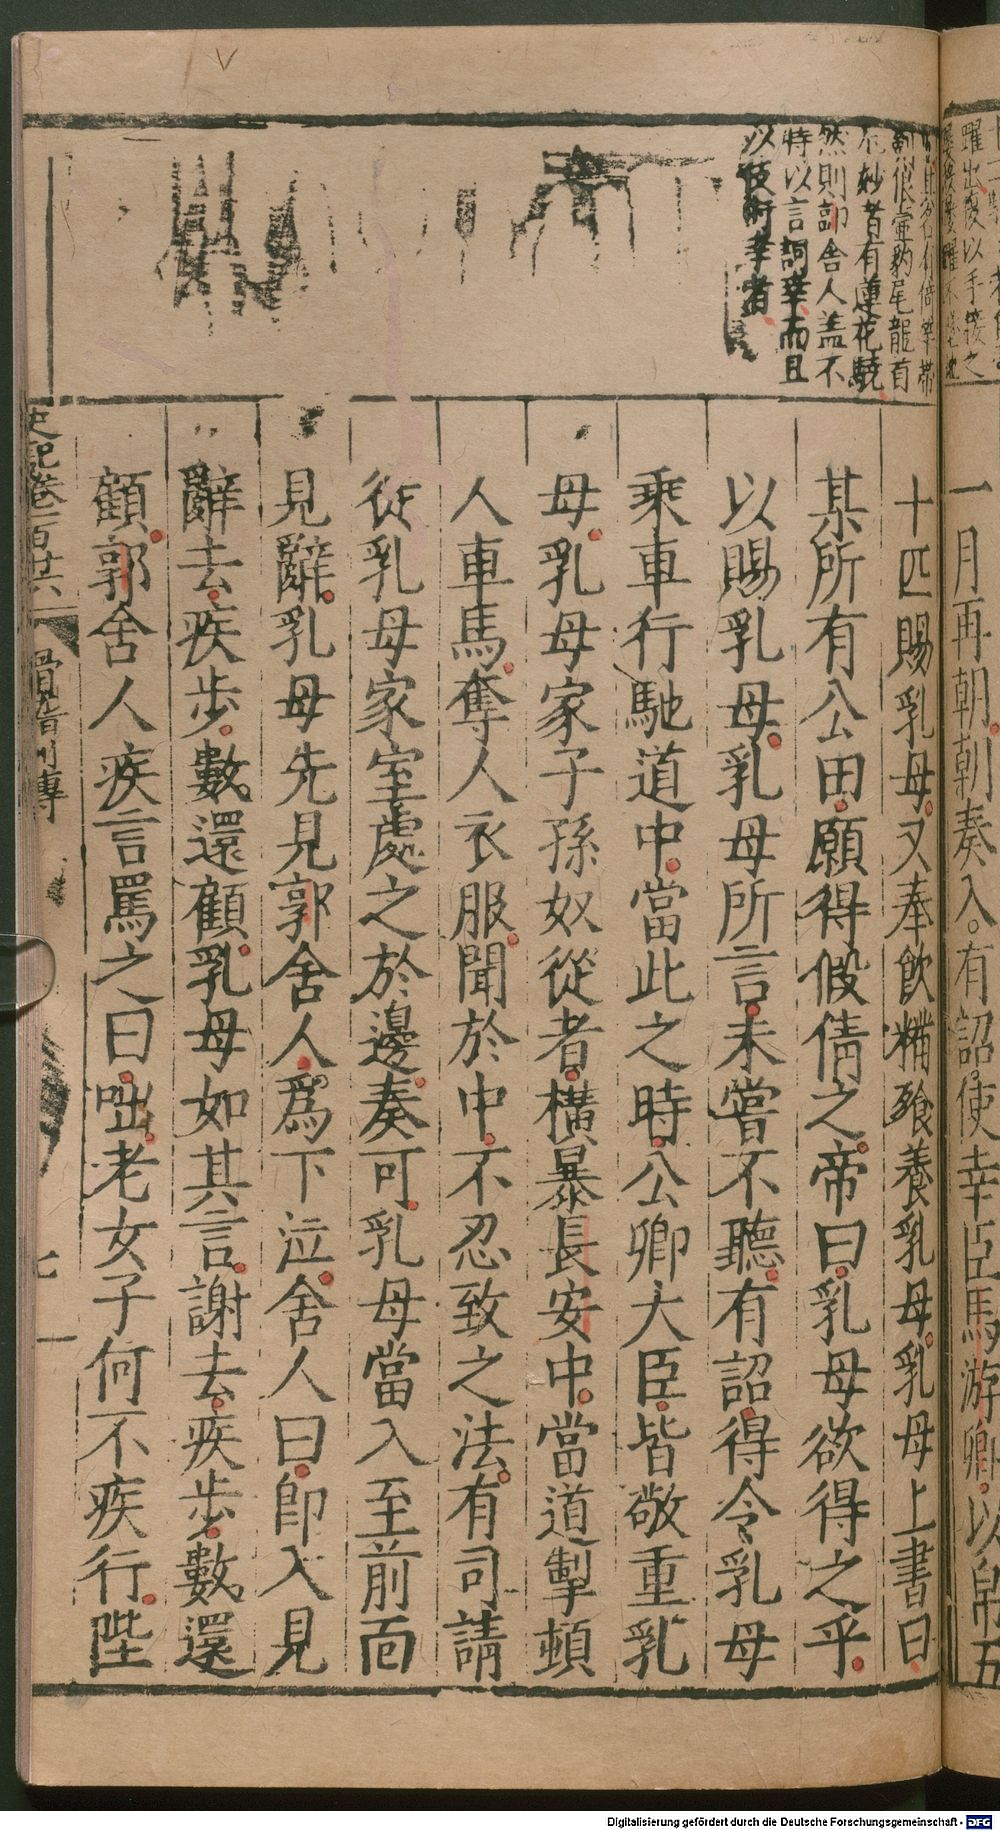 一月再朝朝奏入有詔使幸臣馬游卿以帛五
十匹賜乳母又奉飲糒飱養乳母乳母上書曰
某所有公田願得假倩之帝曰乳母欲得之乎
以賜乳母乳母所言未嘗不聽有詔得令乳母
乘車行馳道中當此之時公卿大臣皆敬重乳
母乳母家子孫奴從者橫暴長安中當道掣頓
人車馬奪人衣服聞於中不忍致之法有司請
徙乳母家室處之於邊奏可乳母當入至前面
見辭乳母先見郭舍人爲下泣舍人曰卽入見
辭去疾步數還顧乳母如其言謝去疾步數還
顧郭舍人疾言罵之曰咄老女子何不疾行陛
躍出復以手接之
豹尾龍首
不妙者有蓮花驍
然則郭舍人蓋不
特以言詞幸而且
以伎術幸者
史記卷一百廿六
滑稽列傳
七
Digitalisierung gefördert durch die Deutsche Forschungsgemeinschaft - DFG